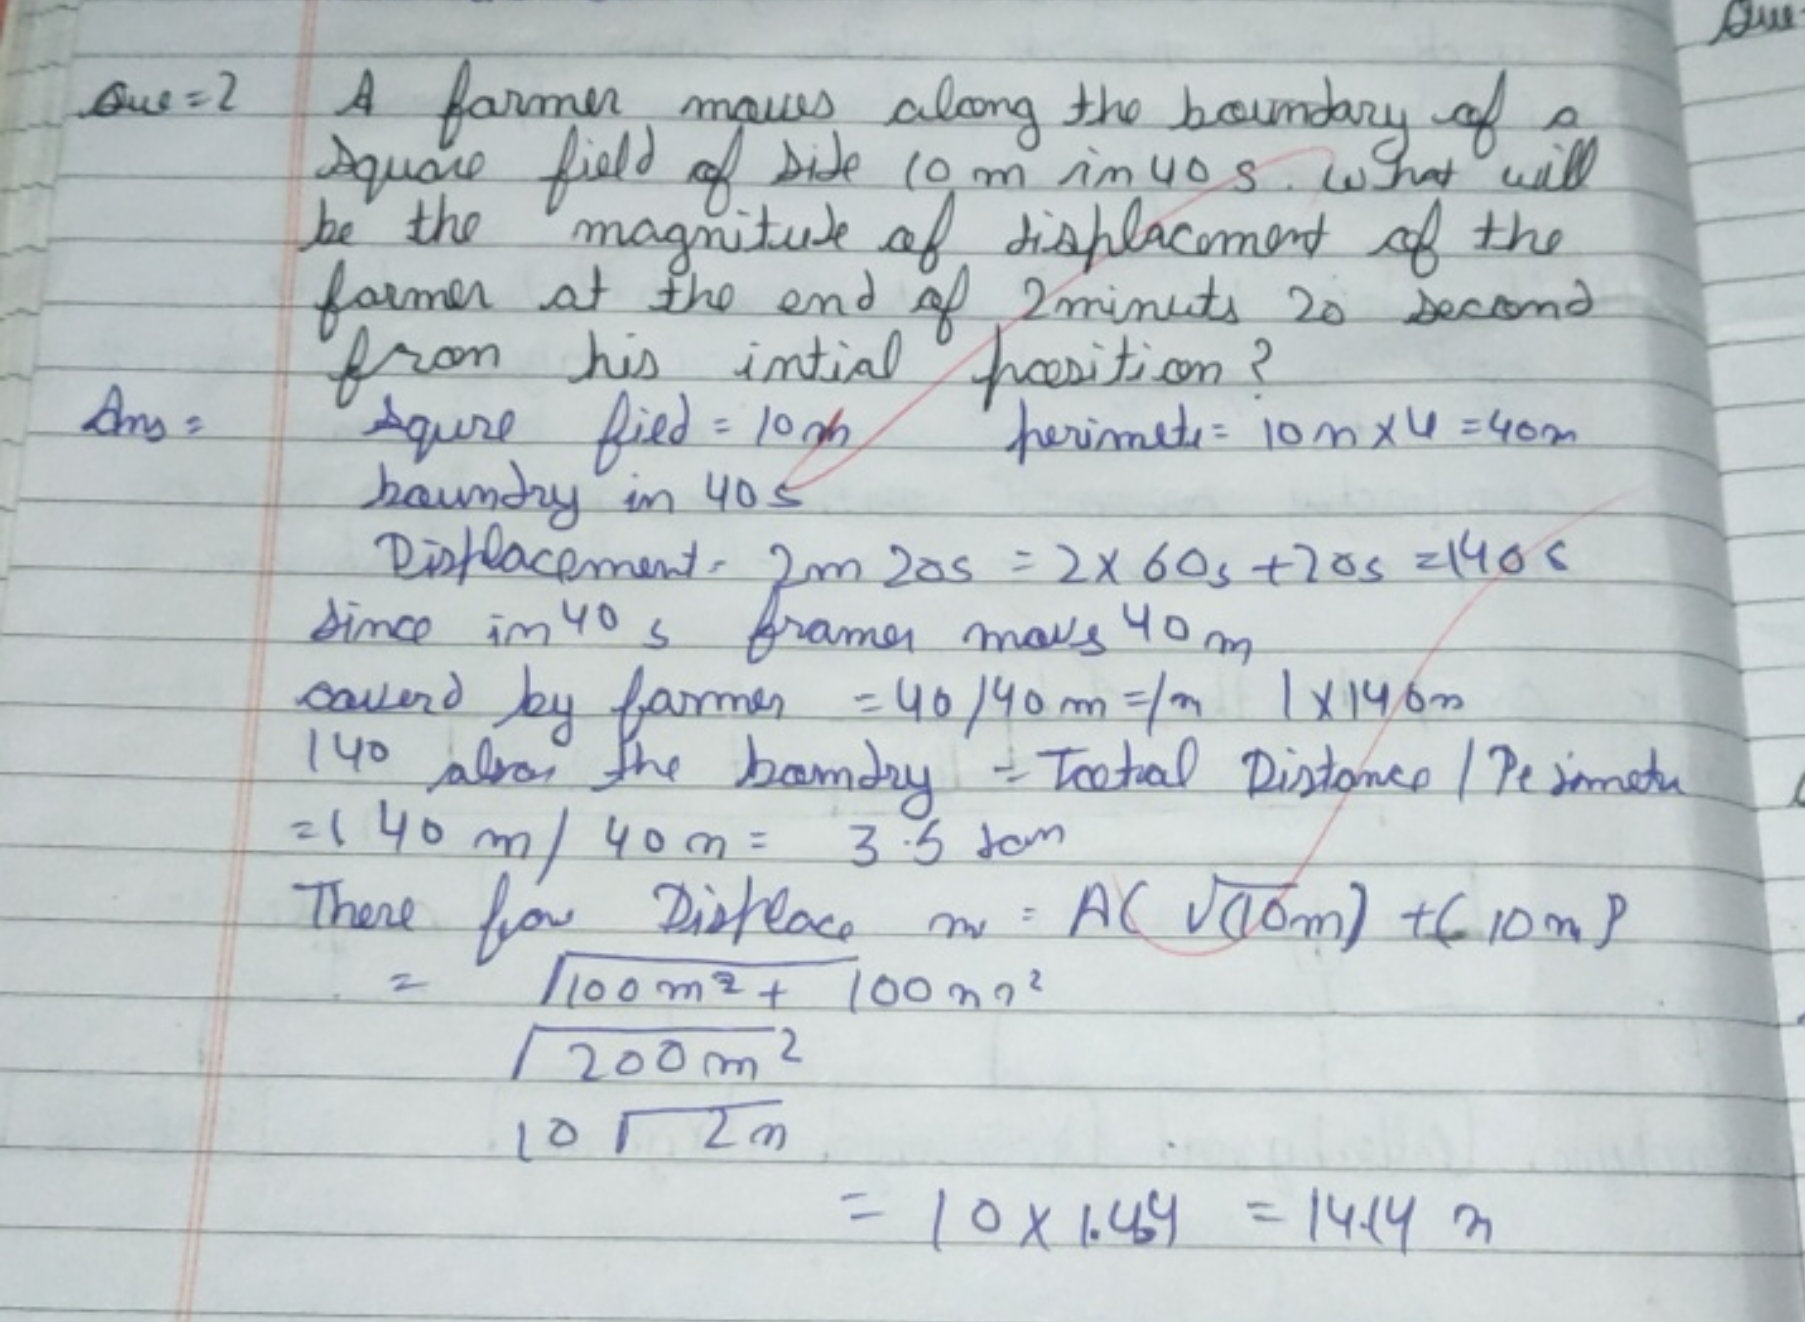 Que
Que = 2 A farmer moves along the boundary of a
square field of side 10 m in 40 s. What will
be the magnitude of displacement of the
farmer at the end of 2minuts 20 second
from his intial position?
Ans = Squre fied = 10m perimete = 10m x 4 = 40m
boundry in 40s
Displacement = 2m 20s = 2 x 60s + 20s = 140s
Since in 40 s framer movs 40 m
coverd by farmer = 40/40 m = 1m 1 x 140m
140 the boundry = Tootal Distance / Perimetu
= 140 m / 40 m = 3.5
There for Displace m = A( √(10m) + (10m)
= √100m² + 100m²
√200m²
10 √2m
= 10 x 1.44 = 14.14 m